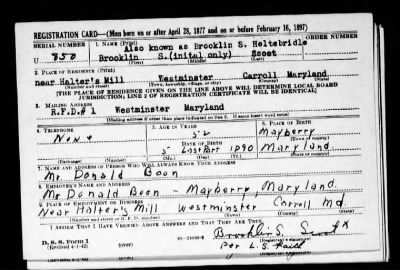 REGISTRATION CARD—(Men born on or after April 28, 1877 and on or before February 16, 1897)
SERIAL NUMBER
1. NAME (Print)
Also known as Brocklin S. Heltebridle
U 850
Brocklin S.(inital only) Scoot
2. PLACE OF RESIDENCE (Print)
near Halter's Mill Westminster Carroll Maryland
(Number and street) (Town, township, village, or city) (County) (State)
[THE PLACE OF RESIDENCE GIVEN ON THE LINE ABOVE WILL DETERMINE LOCAL BOARD
JURISDICTION; LINE 2 OF REGISTRATION CERTIFICATE WILL BE IDENTICAL]
3. MAILING ADDRESS
R.F.D.# 1 Westminster Maryland
[Mailing address if other than place indicated on line 2. If same insert word same]
4. TELEPHONE
5. AGE IN YEARS
6. PLACE OF BIRTH
None
52
Mayberry
DATE OF BIRTH
(Town or county)
1890
Maryland
(Exchange) (Number)
(Mo.) (Day) (Yr.)
(State or country)
7. NAME AND ADDRESS OF PERSON WHO WILL ALWAYS KNOW YOUR ADDRESS
Mr. Donald Boon
8. EMPLOYER'S NAME AND ADDRESS
Mr Donald Boon - Mayberry, Maryland
9. PLACE OF EMPLOYMENT OR BUSINESS
Near Halter's Mill Westminster Carroll Md
(Number and street or R. F. D. number) (Town) (County) (State)
I AFFIRM THAT I HAVE VERIFIED ABOVE ANSWERS AND THAT THEY ARE TRUE.
Brocklin S. Scoot X
D. S. S. Form 1
(Revised 4-1-42) (over)
(Registrant's signature)
Per L.S.